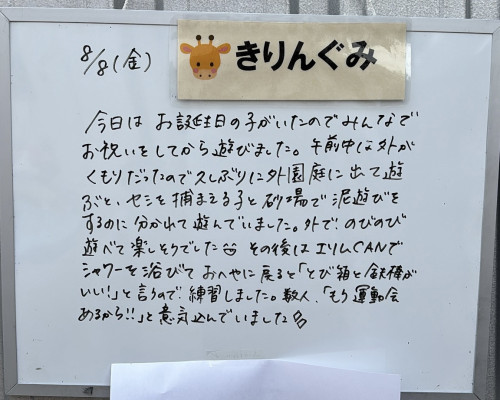 8/8(金)
きりんぐみ
今日は お誕生日の子がいたのでみんなで
お祝いをしてから遊びました。午前中は外が
くもりだったので久しぶりに外園庭に出て遊
ぶと、セミを捕まえる子と砂場で泥遊びを
するのに分かれて遊んでいました。外で、のびのび
遊べて楽しそうでした その後はエリムCANで
シャワーを浴びて おへやに戻ると「とび箱と鉄棒が
いい!」と言うので、練習しました。数人、「もう運動会
あるから!!」と意気込んでいました